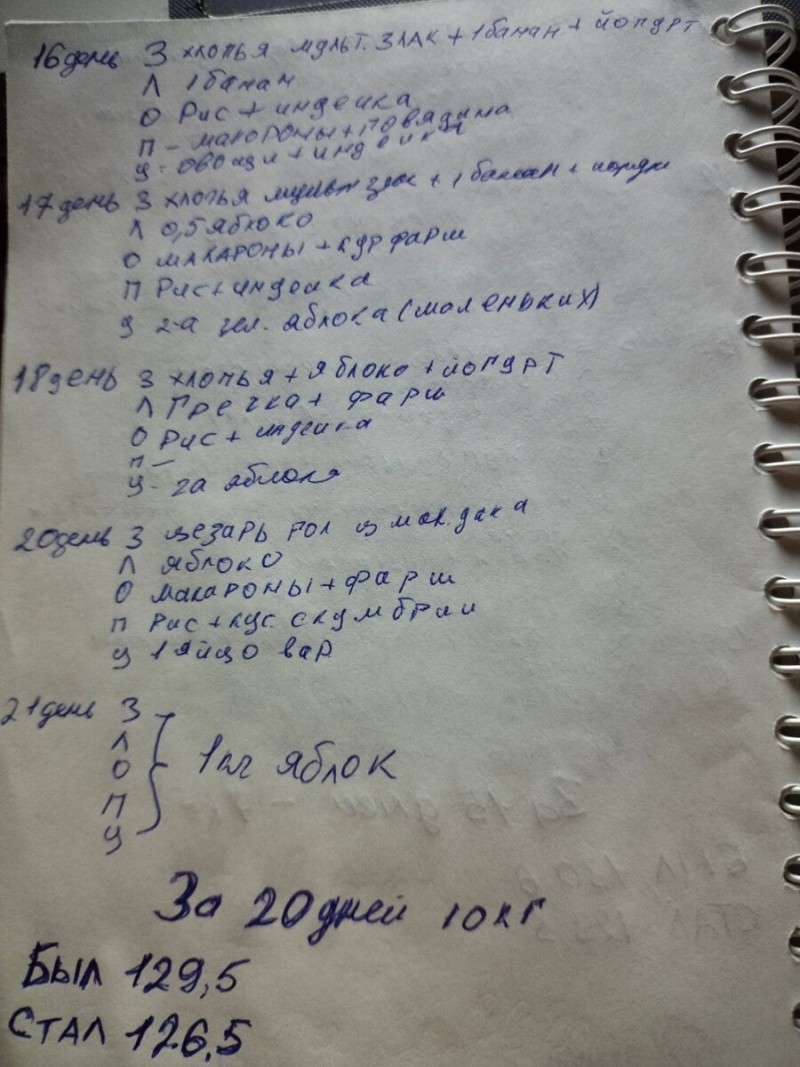 16 день З хлопья мульт. злак + 1 банан + йопурт
Л 1 банан
О Рис + индейка
П - макороны + говядина
У - овощи + индейка
17 день З хлопья мульт злак + 1 банан +
Л 0,5 яблоко
О макароны + кур фарш
П Рис + индейка
У 2-а зел. яблока (моленьких)
18 день З хлопья + яблоко + йопурт
Л Гречка + фарш
О Рис + индейка
П -
У - 2а яблока
20 день З цезарь рол из мак. дака
Л яблоко
О макароны + фарш
П Рис + кус. скумбрии
У 1 яйцо вар.
21 день З
Л
О 1 кг яблок
П
У
За 20 дней 10 кг
Был 129,5
Стал 126,5